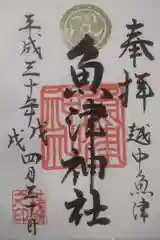 奉拝
越中魚津
魚津神社
平成三十年戊戌四月三十日